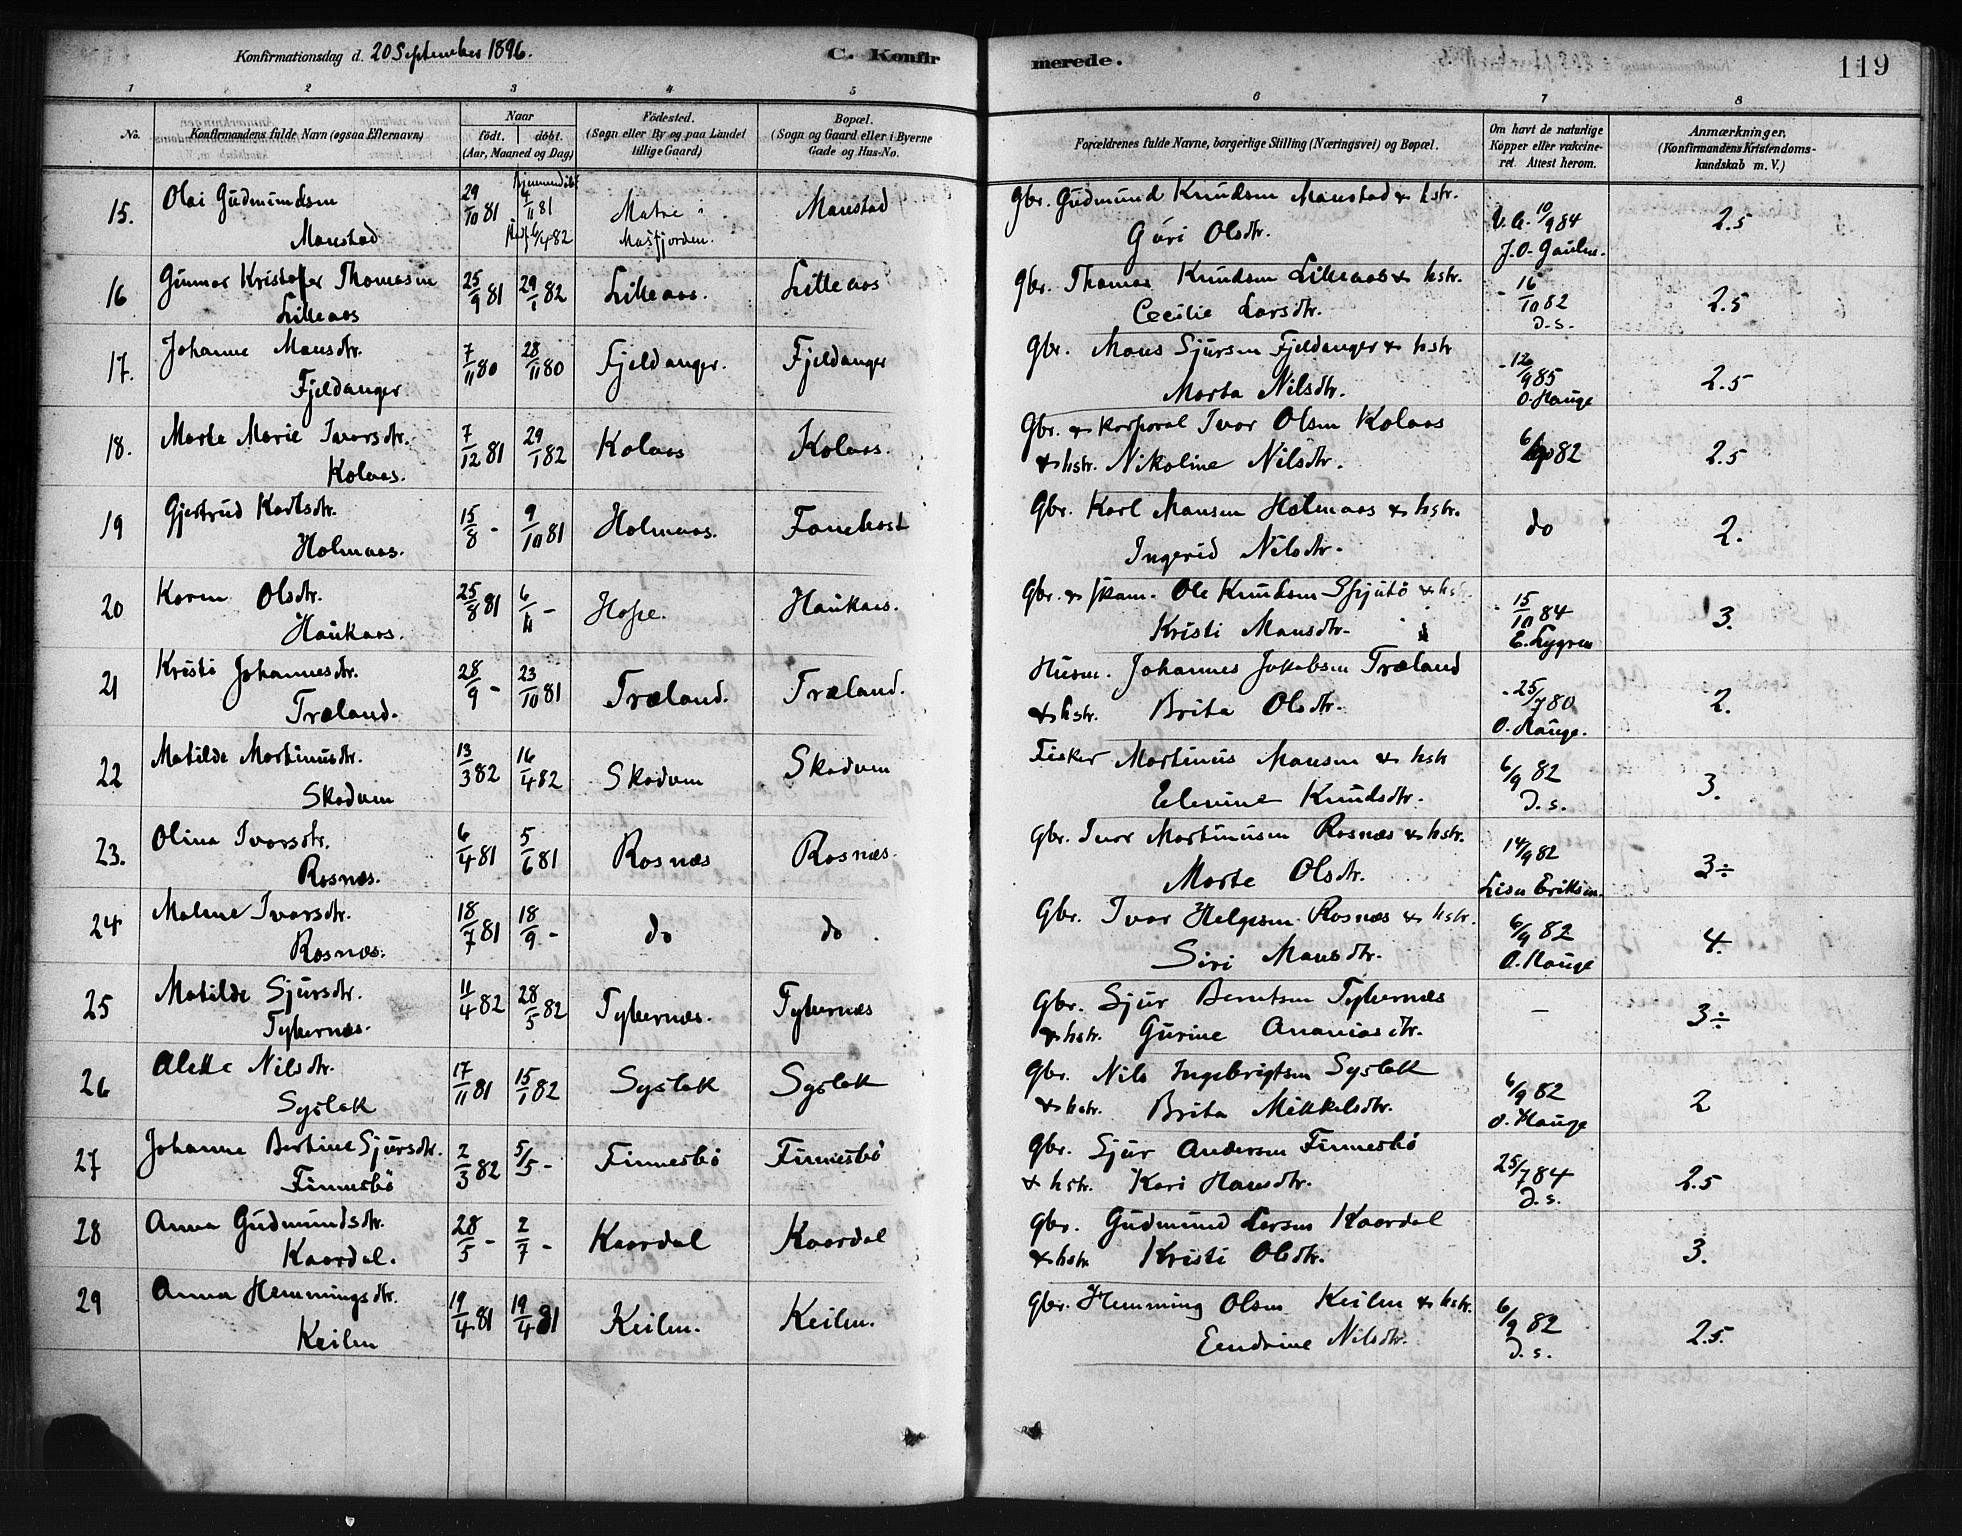 Konfirmationsdag d. 20 September 1896. C. Konfirmerede. 119
1 2 3 4 5 6 7 8
No. Konfirmandens fulde Navn (ogsaa Efternavn) Naar født. døbt. (Aar, Maaned og Dag) Fødested. (Sogn eller By og paa Landet tillige Gaard) Bopæl. (Sogn og Gaard eller i Byerne Gade og Hus-No. Forældrenes fulde Navne, borgerlige Stilling (Næringsvei) og Bopæl. Om havt de naturlige Kopper eller vakcineret. Attest herom. Anmærkninger, (Konfirmandens Kristendomskundskab m. V.)
15. Olai Gudmundsen 29/10 81 Hjemmedøbt 7/11 81 Matre i Manstad Gbr. Gudmund Knudsen Manstad & hstr. V. A. 10/9 84 2.5
Manstad 6/4 82 Masfjorden. Guri Olsdtr. J. O. Gaulen.
16 Gunnar Kristoffer Thomasen 25/9 81 29/1 82 Lilleaas. Lilleaas Gbr. Thomas Knudsen Lilleaas & hstr. - 16/10 82 2.5
Lilleaas Cecilie Larsdtr. D. s.
17. Johanne Mansdtr. 7/11 80 28/11 80 Fjeldanger. Fjeldanger Gbr. Mons Sjursen Fjeldanger & hstr - 12/9 85 2.5
Fjeldanger Marta Nilsdtr. O. Hauge
18. Marte Marie Ivarsdtr. 7/12 81 29/1 82 Kolaas Kolaas. Gbr. & Korporal Ivar Olsen Kolaas 6/9 82 2.5
Kolaas. & hstr. Nikoline Nilsdtr.
19 Gjertrud Karlsdtr. 15/8 - 9/10 81 Holmaas. Fanebost Gbr. Karl Mansen Holmaas & hstr. do 2.
Holmaas. Ingerid Nilsdtr.
20 Karen Olsdtr. 25/8 81 6/11 - Hope. Haukaas. Gbr. & skam. Ole Knudsen & hstr. - 15/10 84 3.
Haukaas. Kristi Mansdtr. E. Lygren
21 Kristi Johannesdtr. 28/9 - 23/10 81 Træland. Træland. Husm. Johannes Jakobsen Træland - 25/7 80 2.
Træland. & hstr. Brita Olsdtr. O. Hauge.
22 Matilde Martinusdtr. 13/3 82 16/4 82 Skadven Skodven Fisker Martinus Mansen & hstr 6/9 82 3.
Skodven Elevine Knudsdtr. D. s.
23. Olina Ivarsdtr. 6/4 81 5/6 81 Rosnæs Rosnæs. Gbr. Ivar Martinusen Rosnæs & hstr. 14/9 82 3÷
Rosnæs. Marte Olsdtr. Lisa Eriksen.
24 Malene Ivarsdtr. 18/7 81 18/9 - do do. Gbr. Ivar Helgesen Rosnæs & hstr. 6/9 82 4.
Rosnæs. Siri Mansdtr. O. Hauge
25 Matilde Sjursdtr. 11/4 82 28/5 82 Tyternæs. Tyternæs Gbr. Sjur Berntsen Tyternæs - 3÷
Tyternæs. & hstr. Gurine Ananiasdtr.
26 Alette Nilsdtr. 17/11 81 15/1 82 Syslak Syslak Gbr. Nils Ingebrigtsen Syslak 6/9 82 2
Syslak & hstr. Brita Mikkelsdtr. O. Hauge
27 Johanne Bertine Sjursdtr. 2/3 82 5/5 - Finnesbö Finnesbö Gbr. Sjur Andersen Finnesbö 25/7 84 2.5
Finnesbö & hstr. Kari Hansdtr. D. s.
28 Anna Gudmundsdtr. 28/5 - 2/7 - Kaardal Kaardal Gbr. Gudmund Larsen Kaardal 3.
Kaardal. & hstr Kristi Olsdtr.
29 Anna Hemmingsdtr. 19/4 81 19/4 81 Keilen. Keilen. Gbr. Hemming Olsen Keilen & hstr. 6/9 82 2.5.
Keilen Eendrine Nilsdtr. D. s.